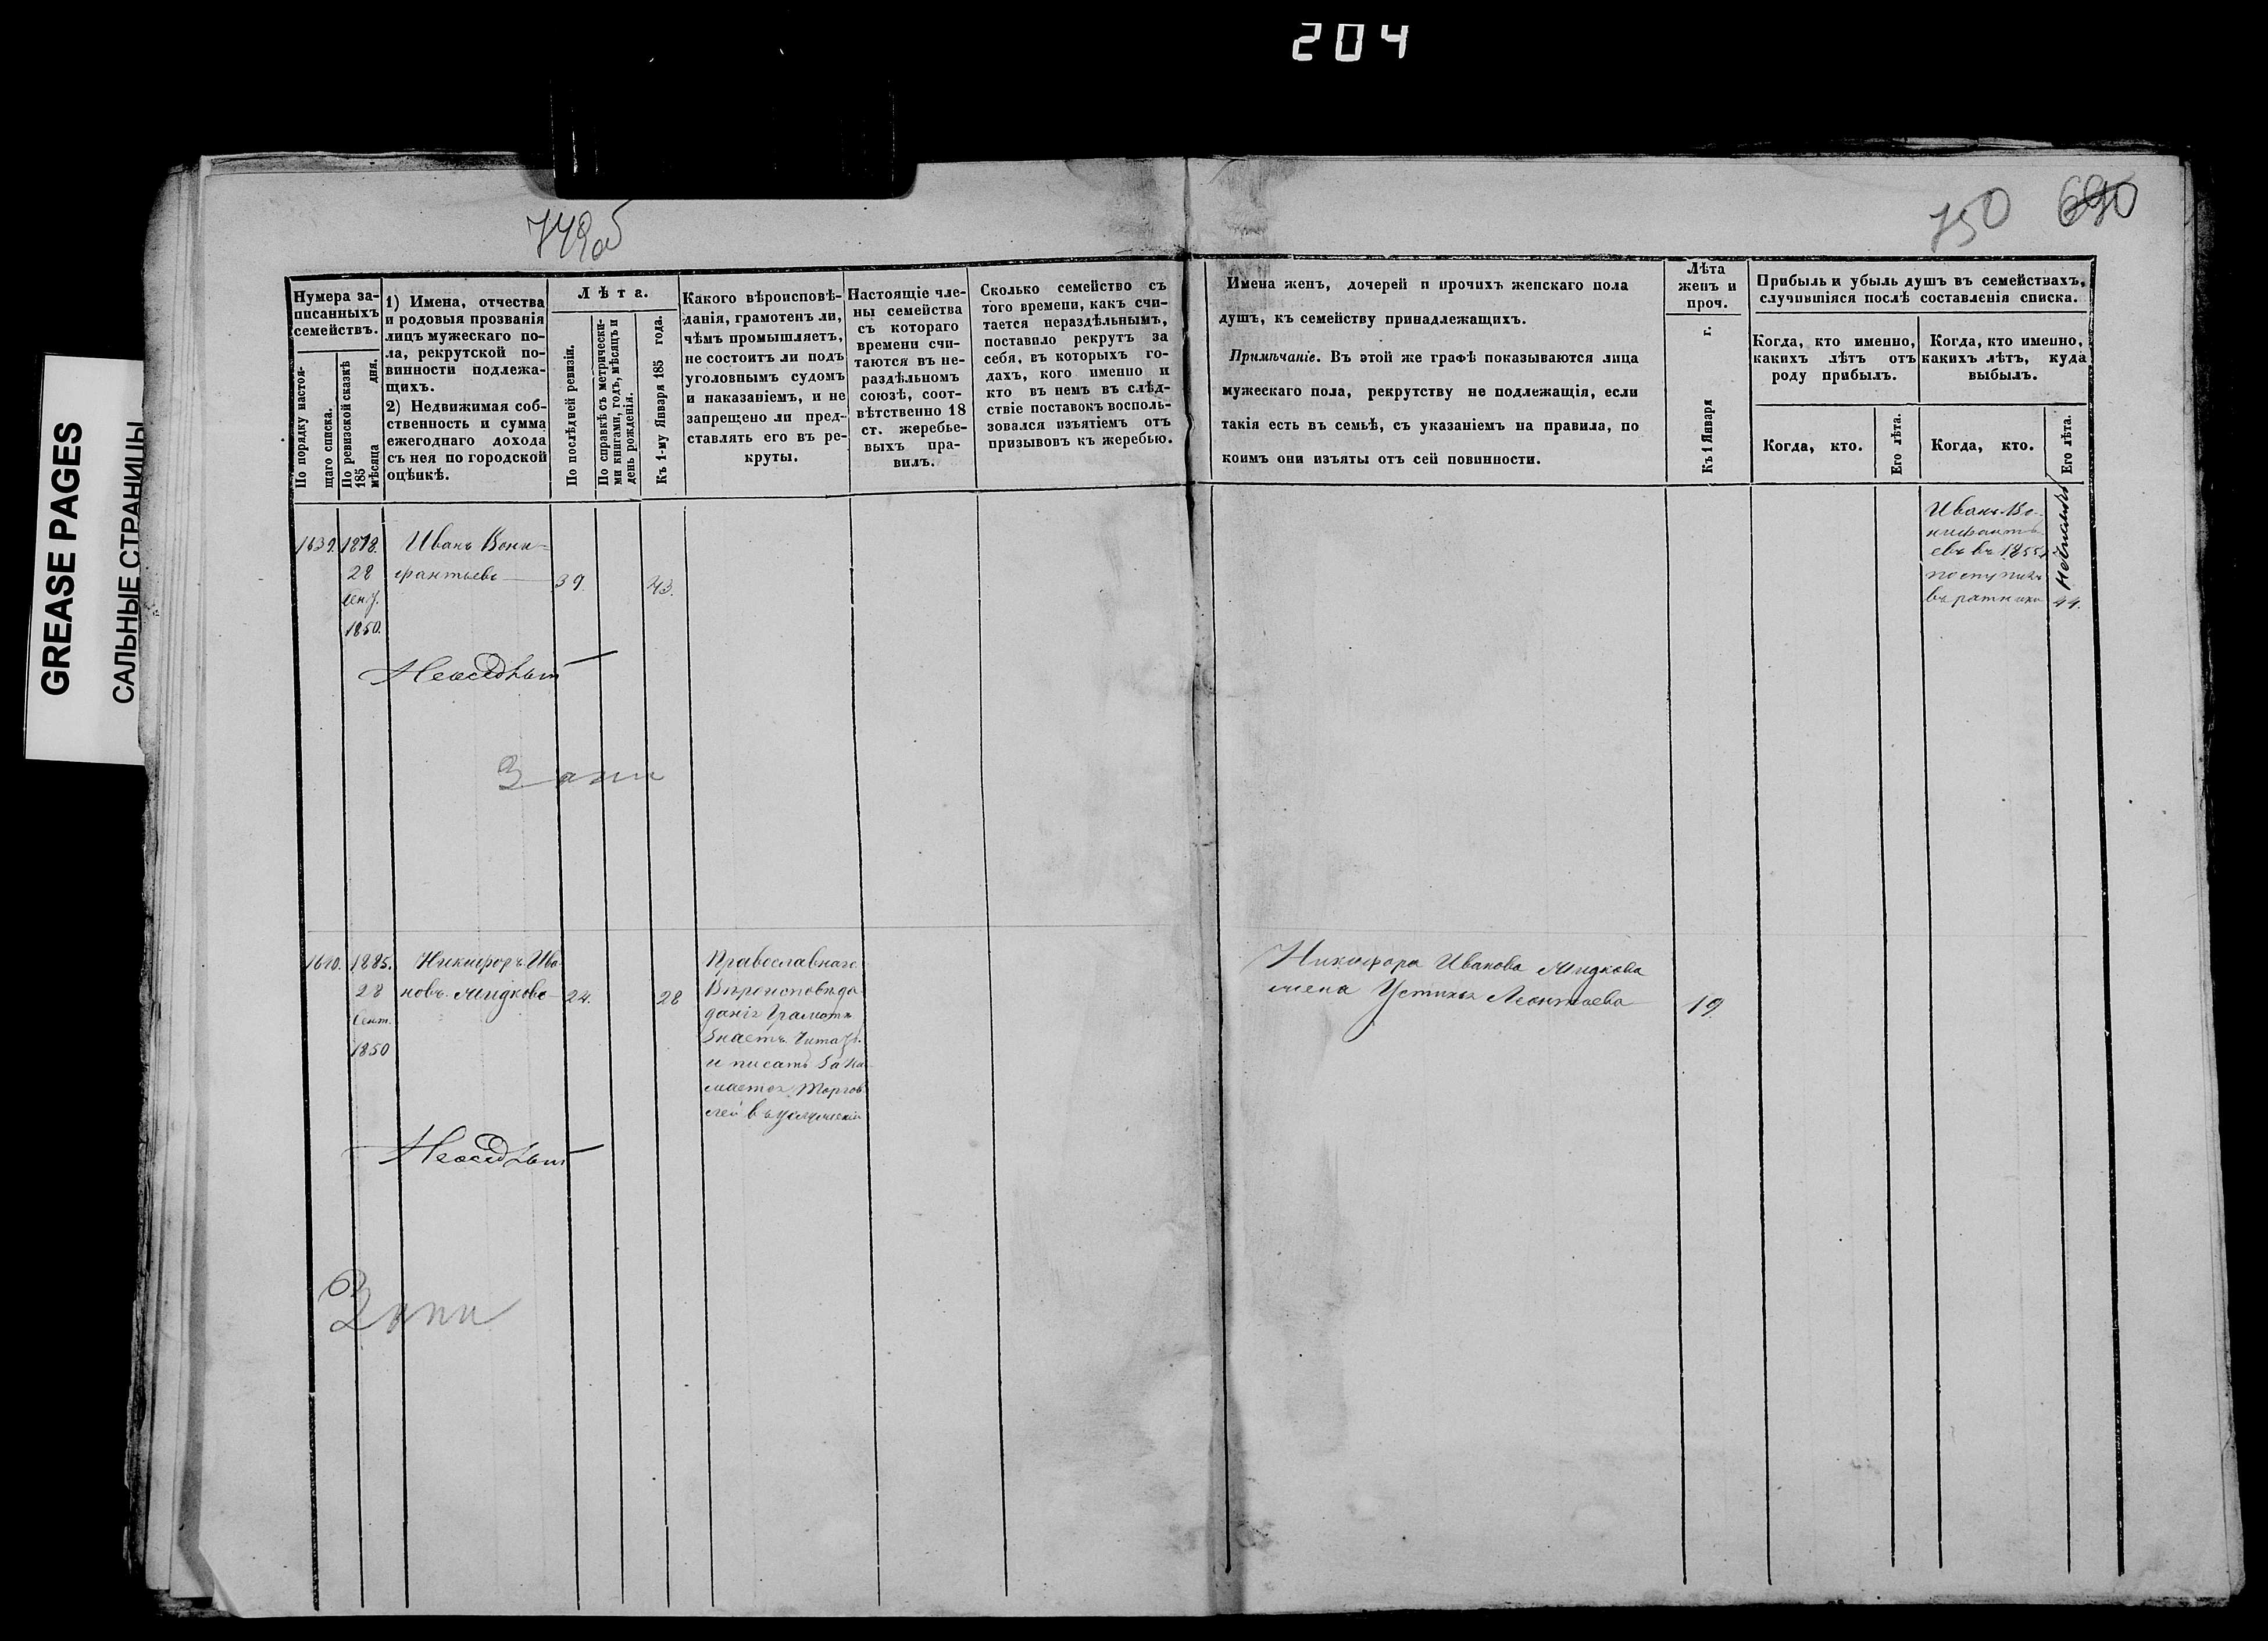 204
GREASE PAGES
САЛЬНЫЕ СТРАНИЦЫ
749об
750 690
Нумера за-
писанныхъ
семействъ.
По порядку настоя-
щаго списка.
По ревизской сказкѣ
185 дня.
мѣсяца
1) Имена, отчества
и родовыя прозванія
лицъ мужескаго по-
ла, рекрутской по-
винности подлежа-
щихъ.
2) Недвижимая соб-
ственность и сумма
ежегоднаго дохода
съ нея по городской
оцѣнкѣ.
Лѣта.
По послѣдней ревизіи.
По справкѣ съ метрически-
ми книгами, годъ, мѣсяцъ и
день рожденія.
Къ 1-му Января 185 года.
Какого вѣроисповѣ-
данія, грамотенъ ли,
чѣмъ промышляетъ,
не состоитъ ли подъ
уголовнымъ судомъ
и наказаніемъ, и не
запрещено ли пред-
ставлять его въ ре-
круты.
Настоящіе чле-
ны семейства
съ котораго
времени счи-
таются въ не-
раздѣльномъ
союзѣ, соот-
вѣтственно 18
ст. жеребье-
выхъ пра-
вилъ.
Сколько семейство съ
того времени, какъ счи-
тается нераздѣльнымъ,
поставило рекрутъ за
себя, въ которыхъ го-
дахъ, кого именно и
кто въ немъ въ слѣд-
ствіе поставокъ восполь-
зовался изъятіемъ отъ
призывовъ къ жеребью.
Имена женъ, дочерей и прочихъ женскаго пола
душъ, къ семейству принадлежащихъ.
Примѣчаніе. Въ этой же графѣ показываются лица
мужескаго пола, рекрутству не подлежащія, если
такія есть въ семьѣ, съ указаніемъ на правила, по
коимъ они изъяты отъ сей повинности.
Лѣта
женъ и
проч.
Къ 1 Января г.
Прибыль и убыль душъ въ семействахъ,
случившіяся послѣ составленія списка.
Когда, кто именно,
какихъ лѣтъ отъ
роду прибылъ.
Когда, кто именно,
какихъ лѣтъ, куда
выбылъ.
Когда, кто.
Его лѣта.
Когда, кто.
Его лѣта.
1639. 1878. Иванъ Вони-
28 фантьевъ 39. 43.
сен.
1850.
Иванъ Во-
нифантъ-
евъ въ 1855
поступилъ
въ ратники 44.
Неосѣдлый
Запи
1640. 1885. Никифоръ Ива
28 новъ Мидковъ 24. 28
Сент.
1850
Православнаго
Вѣроисповѣда
данія Грамотѣ
Знаетъ Читать
и писать Зани
мается Торгов
лей въ
Никифора Иванова Мидкова
жена Устинья Леонтьева 19
Неосѣдлый
Запи